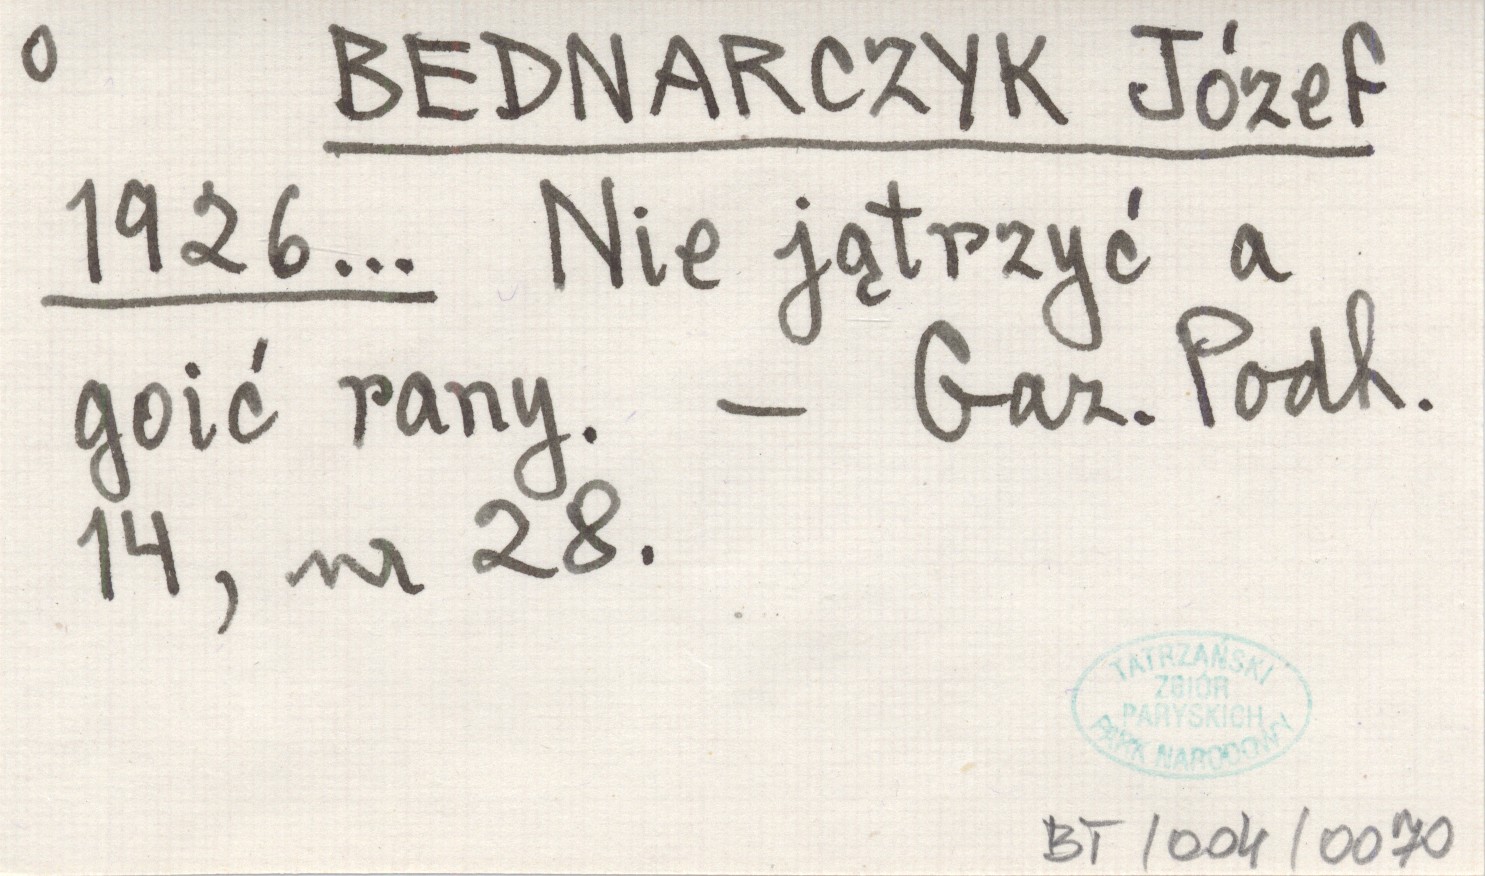 o BEDNARCZYK Józef
1926... Nie jątrzyć a
goić rany. — Gaz. Podh.
14, nr 28.
TATRZAŃSKI
ZBIÓR
PARYSKICH
PARK NARODOWY
BT/004/0070